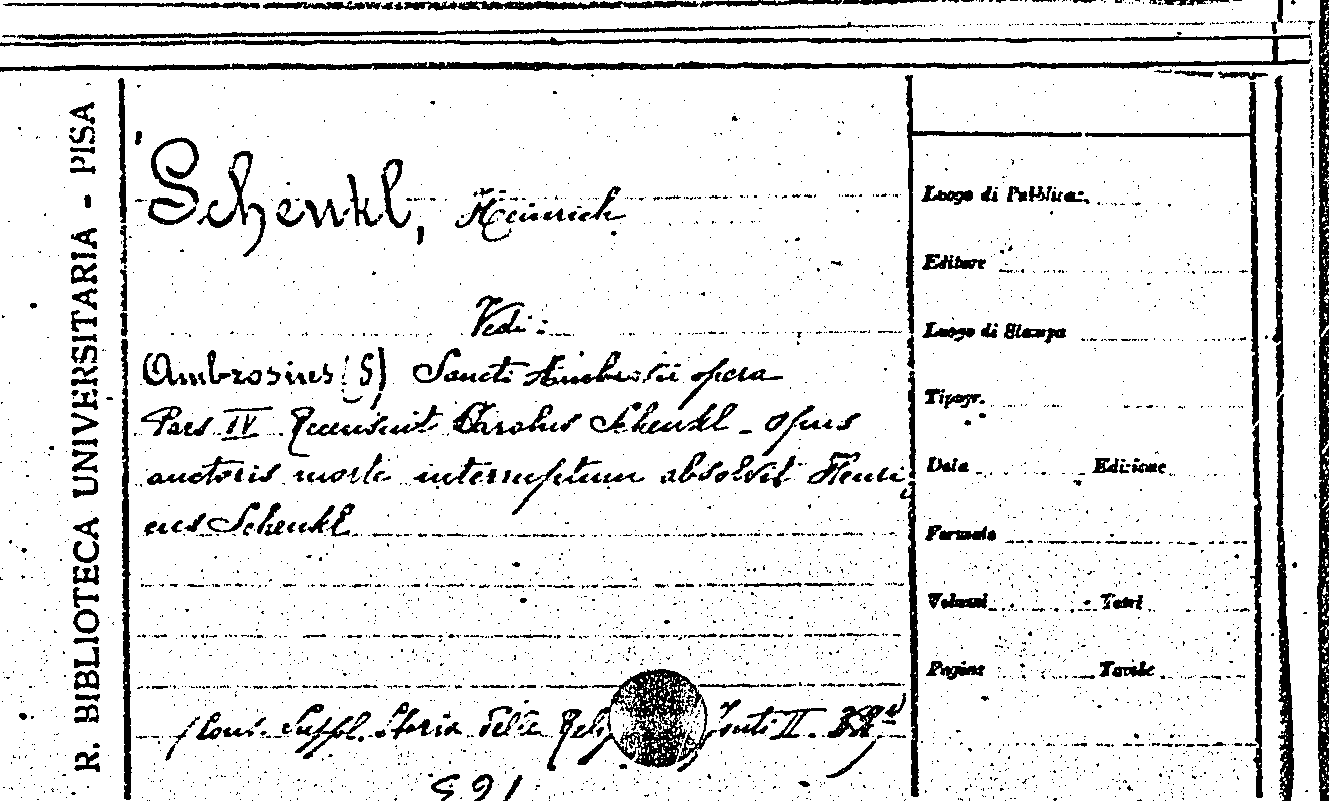 R. BIBLIOTECA UNIVERSITARIA - PISA
Schenkl, Heinrich
Vedi:
Ambrosius (S) Sancti Ambrosii opera
Pars IV Recensuit Carolus Schenkl - opus
auctoris morte interruptum absolvit Henri
cus Schenkl
Suppl. Storia delle Reli Fonti II.
Luogo di Pubblicaz.
Editore
Luogo di Stampa
Tipogr.
Data Edizione
Formato
Volumi Tomi
Pagine Tavole